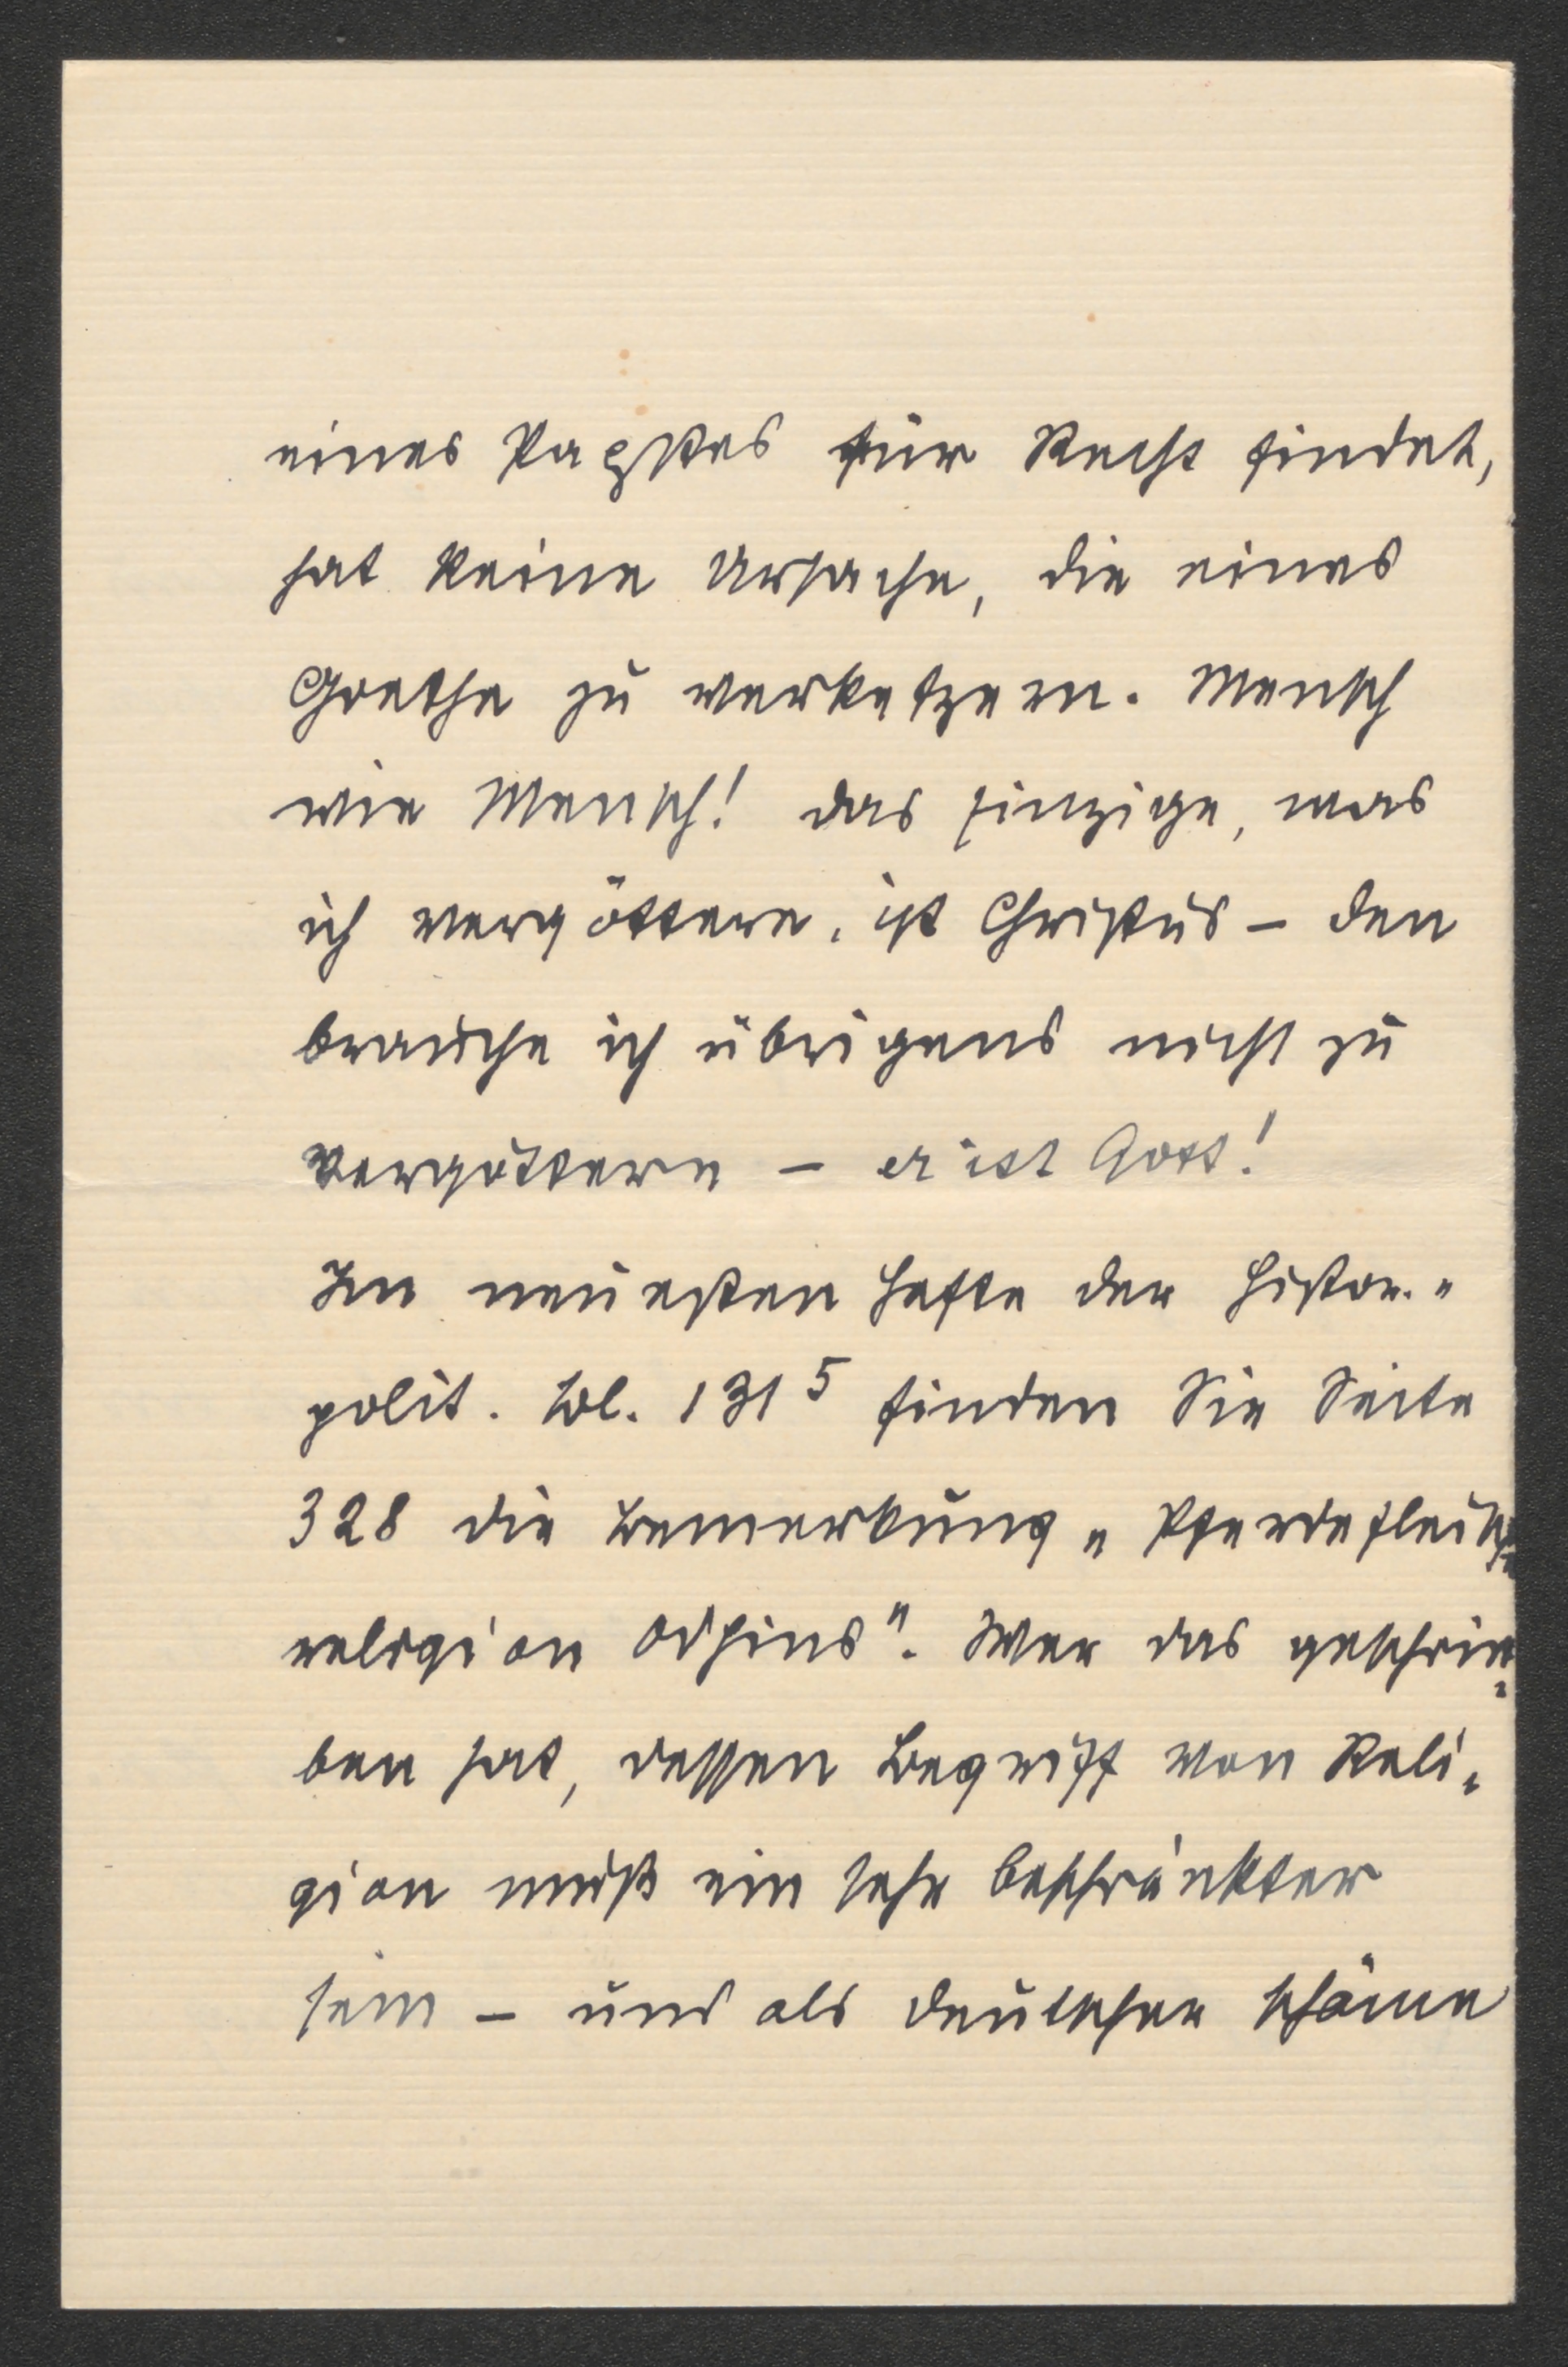 eines Papstes für Recht findet,
hat keine Ursache, die eines
Goethe zu verketzern. Mensch
wie Mensch! das Einzige, was
ich vergöttere, ist Christus – den
brauche ich übrigens nicht zu
vergöttern – er ist Gott!
Im neuesten Hefte der histor.-
polit. Bl. 131⁵ finden Sie Seite
328 die Bemerkung „Pferdefleisch-
religion Odhins“. Wer das geschrie-
ben hat, dessen Begriff von Reli-
gion muß ein sehr beschränkter
sein – und als Deutscher schäme